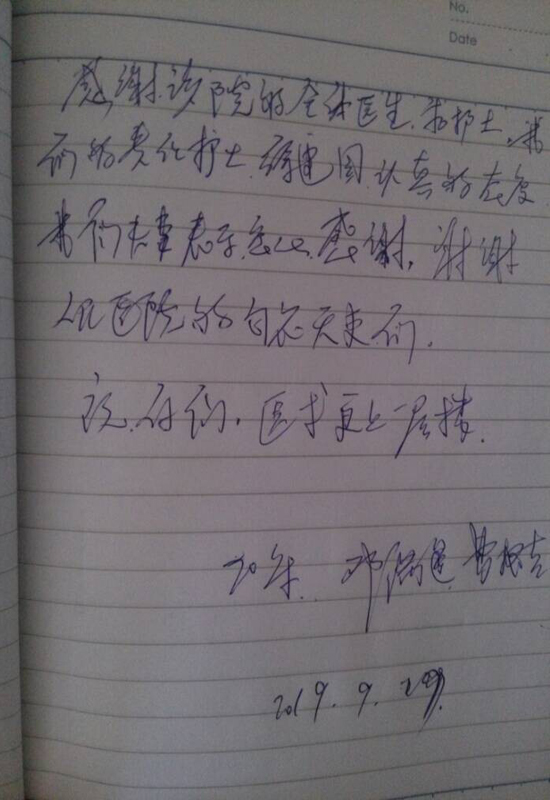 No.
Date
感谢该院的全体医生、和护士,
们的责任护士 认真的态度
们夫妻表示忠心感谢,谢谢
人民医院的白衣天使们.
祝.你们.医术更上一层楼.
2019.9.